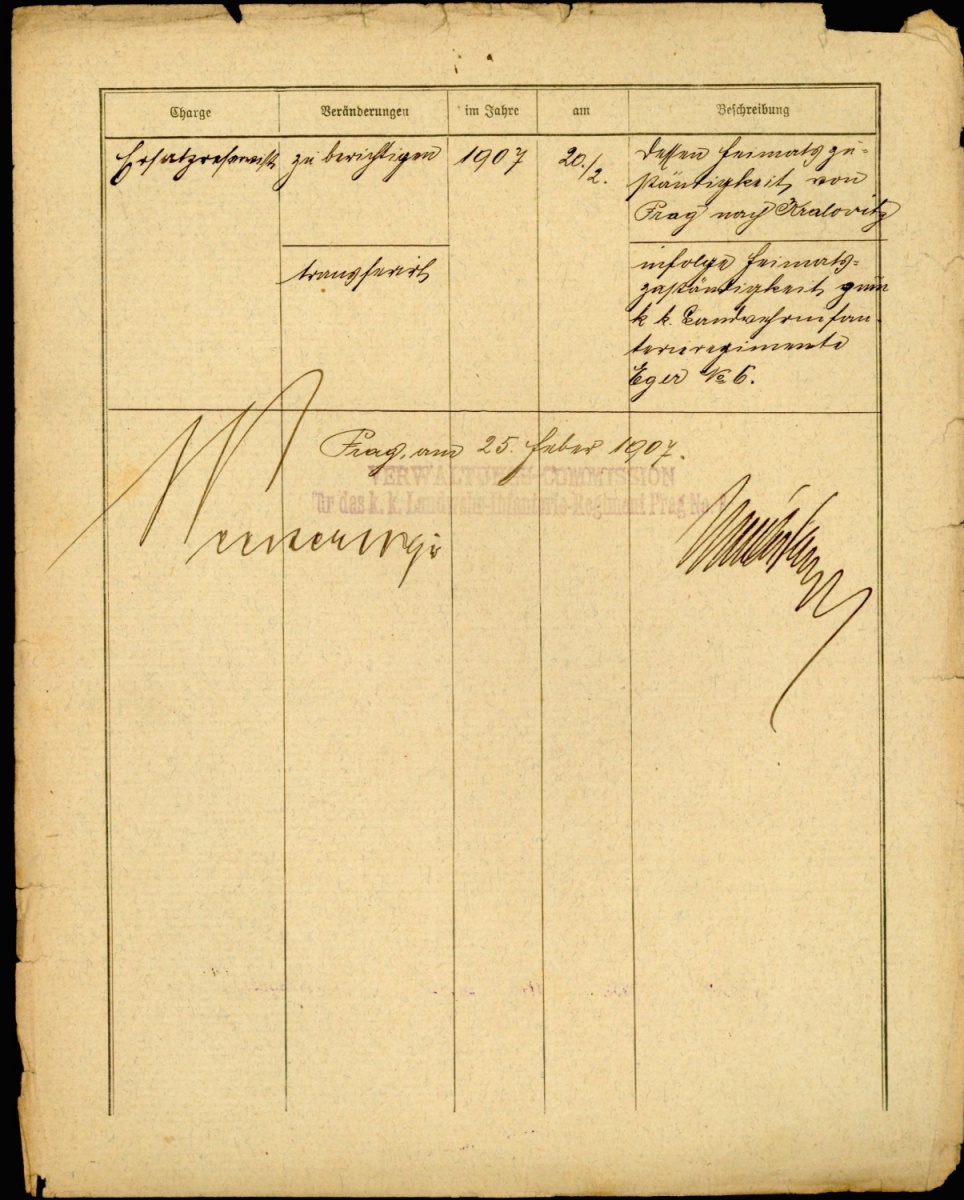 Charge Veränderungen im Jahre am Beschreibung
Ersatzreservist zu berichtigen 1907 20./2. dessen Heimatszu=
ständigkeit von
Prag nach Kralovitz
transferirt infolge Heimats=
zuständigkeit zum
k. k. Landwehrinfan-
terieregimente
Eger № 6.
Prag, am 25. Feber 1907.
VERWALTUNGS-COMMISSION
für das k. k. Landwehr-Infanterie-Regiment Prag No. 8